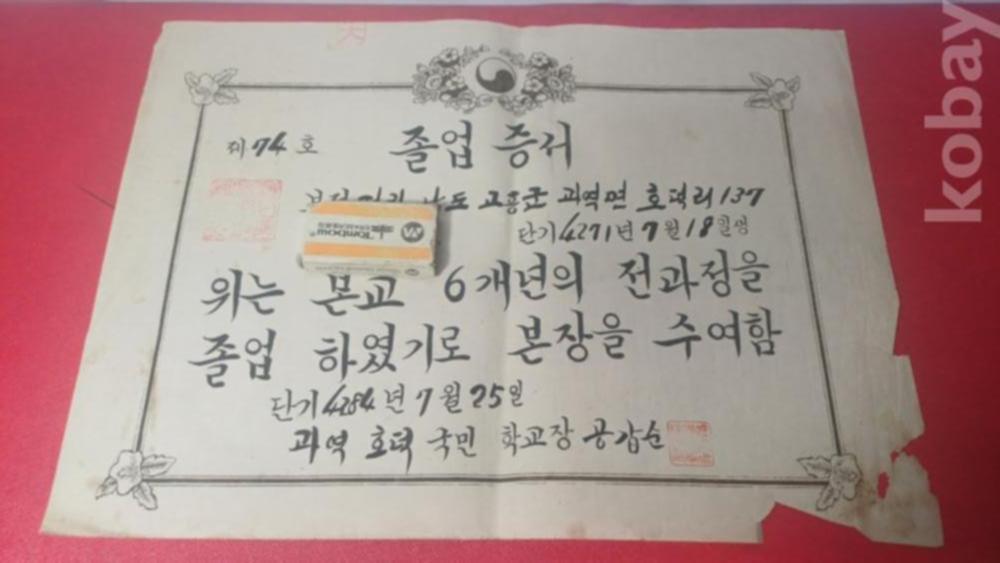 제 74 호
졸업 증서
본적 전라 남도 고흥군 과역면 호덕리 137
단기 4271년 7월 18일생
위는 본교 6개년의 전과정을
졸업 하였기로 본장을 수여함
단기 4284년 7월 25일
과역 호덕 국민 학교장 공갑순
Tombow
kobay